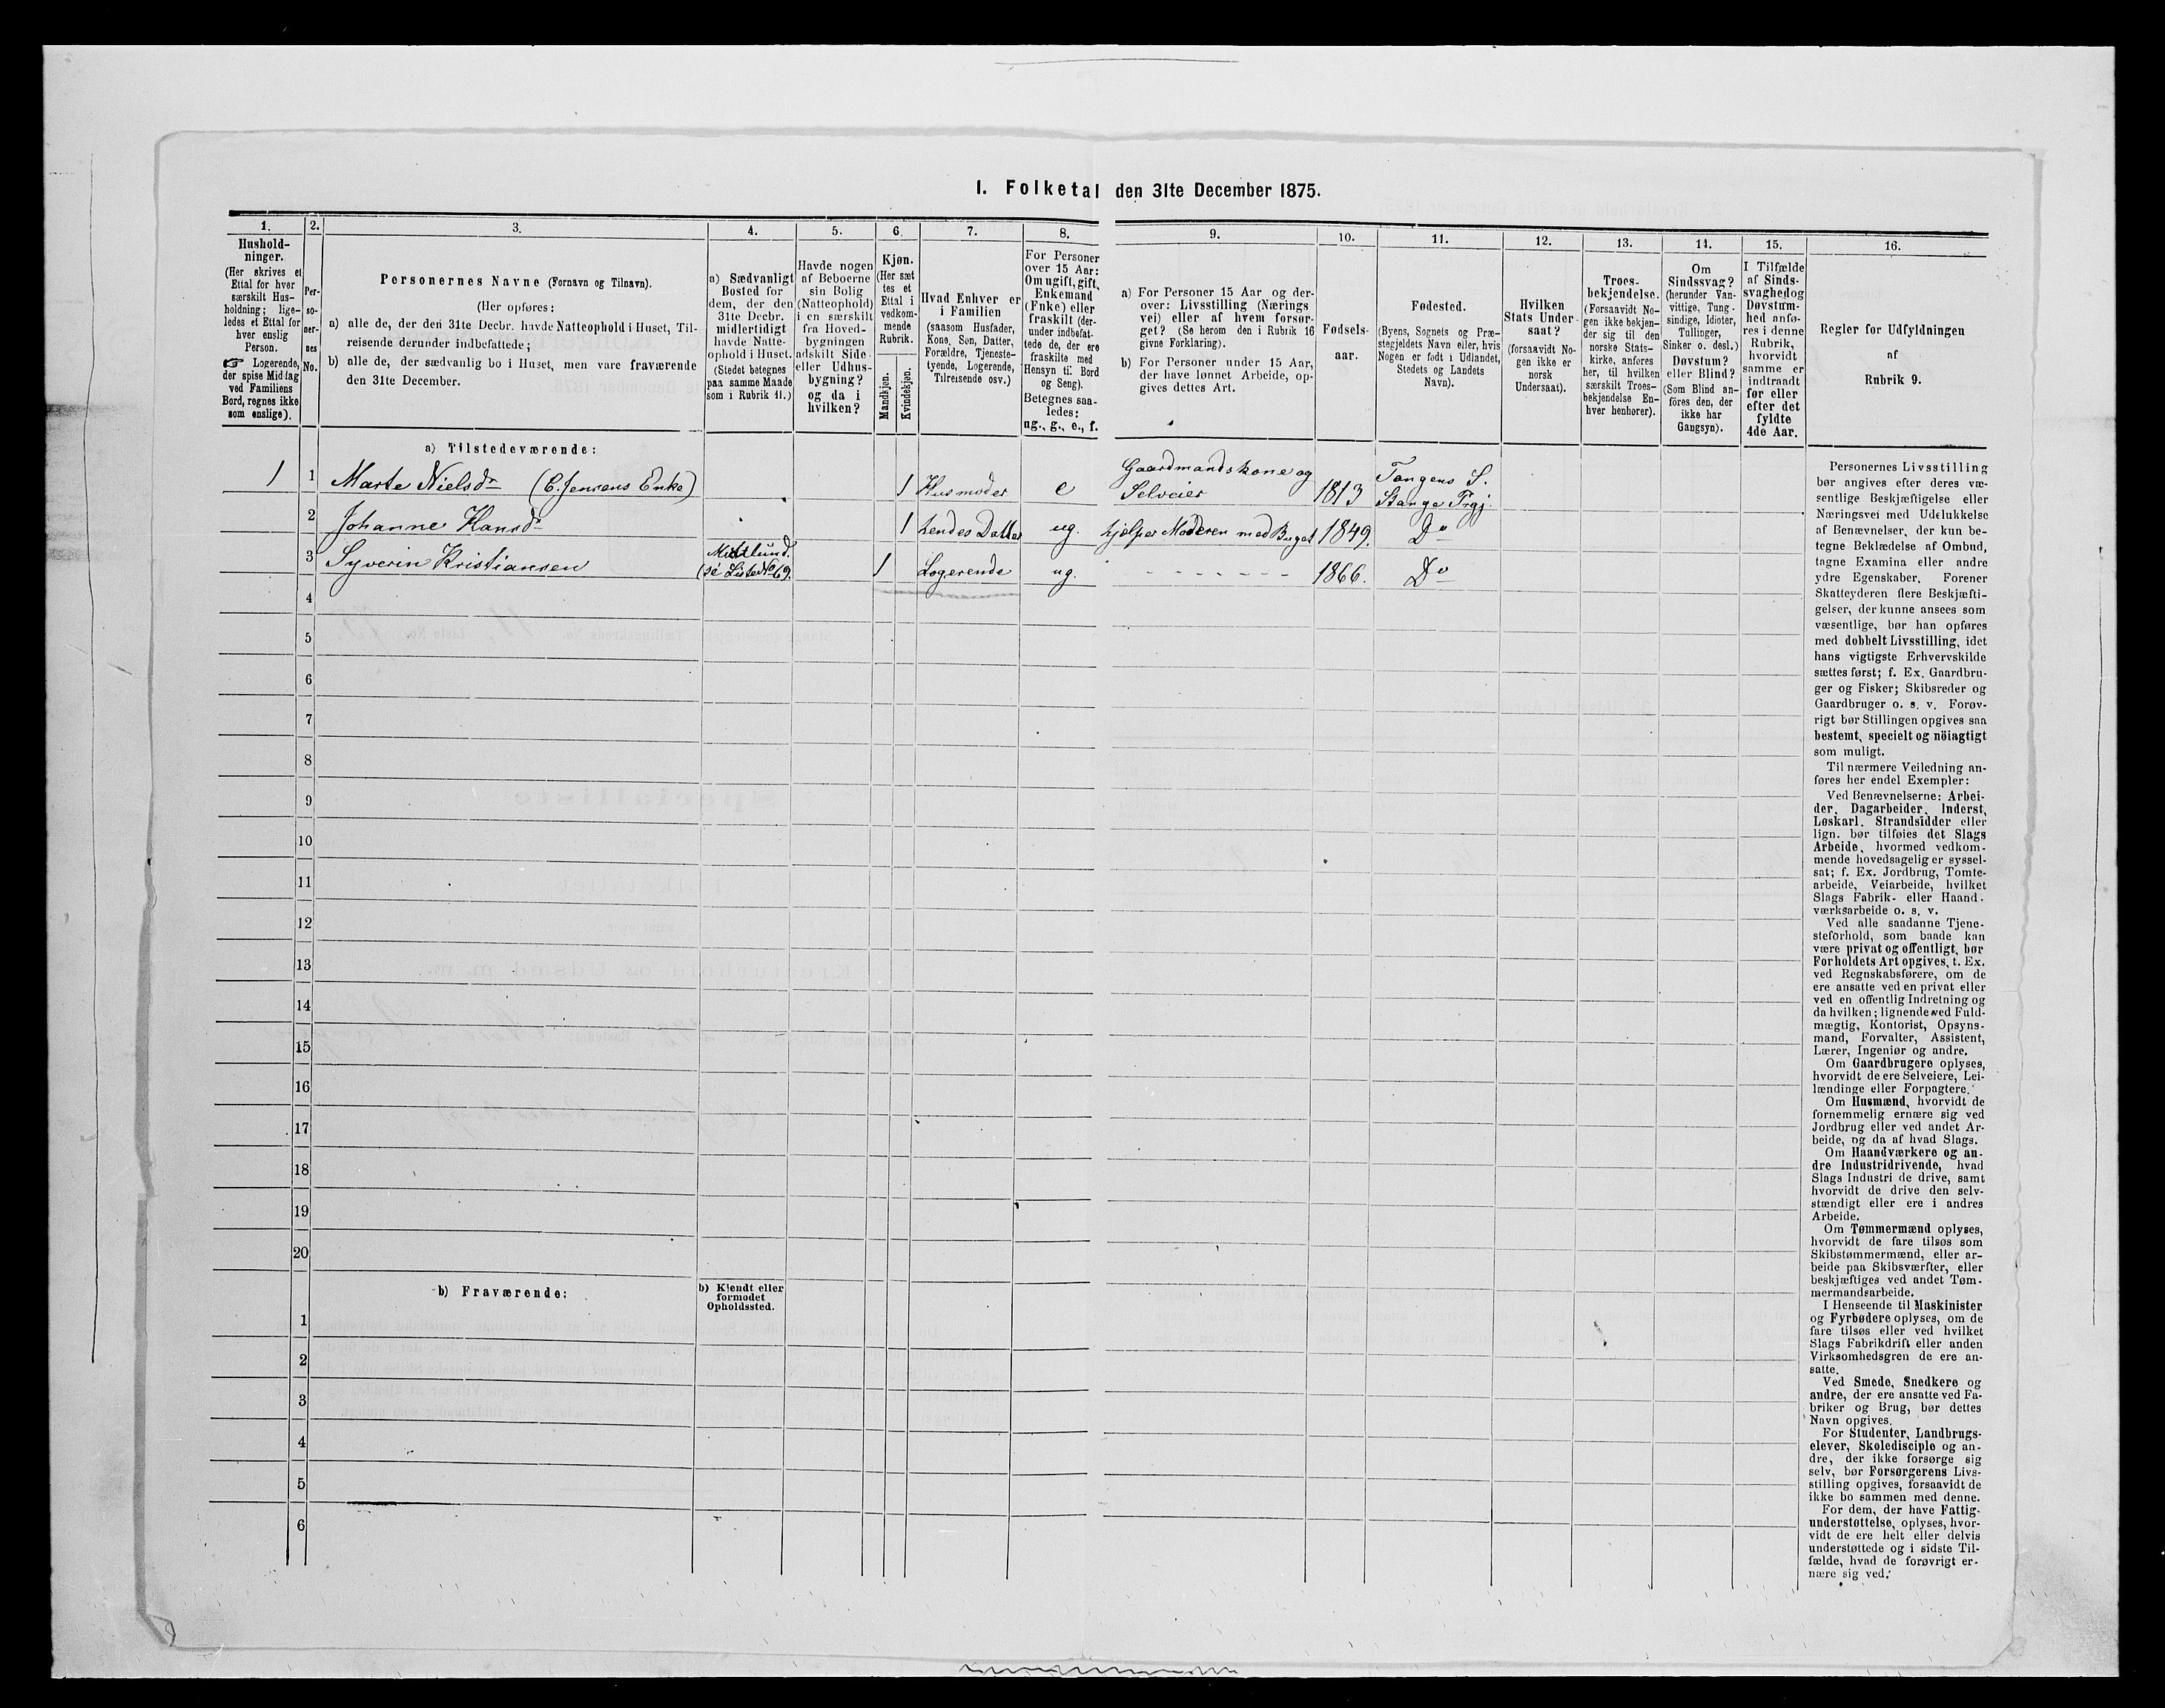 1. Folketal den 31te December 1875.
1.
2.
3.
4.
5.
6.
7.
8.
9.
10.
11.
12.
13.
14.
15.
16.
Hushold-
ninger.
(Her skrives et
Ettal for hver
særskilt Hus-
holdning; lige-
ledes et Ettal for
hver enslig
Person.
☞ Logerende,
der spise Middag
ved Familiens
Bord, regnes ikke
som enslige).
Per-
so-
ner-
nes
No.
Personernes Navne (Fornavn og Tilnavn).
(Her opføres:
a) alle de, der den 31te Decbr. havde Natteophold i Huset, Til-
reisende derunder indbefattede;
b) alle de, der sædvanlig bo i Huset, men vare fraværende
den 31te December.
a) Sædvanligt
Bosted for
dem, der den
31te Decbr.
midlertidigt
havde Natte-
ophold i Huset.
(Stedet betegnes
paa samme Maade
som i Rubrik 11.)
Havde nogen
af Beboerne
sin Bolig
(Natteophold)
i en særskilt
fra Hoved-
bygningen
adskilt Side-
eller Udhus-
bygning?
og da i
hvilken?
Kjøn.
(Her sæt
tes et
Ettal i
vedkom-
mende
Rubrik.
Mandkjøn.
Kvindekjøn.
Hvad Enhver er
i Familien
(saasom Husfader,
Kone, Søn, Datter,
Forældre, Tjeneste-
tyende, Logerende,
Tilreisende osv.)
For Personer
over 15 Aar:
Om ugift, gift,
Enkemand
(Enke) eller
fraskilt (der-
under indbefat-
tede de, der ere
fraskilte med
Hensyn til Bord
og Seng).
Betegnes saa-
ledes:
ug., g., e., f.
a) For Personer 15 Aar og der-
over: Livsstilling (Nærings
vei) eller af hvem forsør-
get? (Se herom den i Rubrik 16
givne Forklaring).
b) For Personer under 15 Aar,
der have lønnet Arbeide, op-
gives dettes Art.
Fødsels-
aar.
Fødested.
(Byens, Sognets og Præ-
stegjeldets Navn eller, hvis
Nogen er født i Udlandet,
Stedets og Landets
Navn).
Hvilken
Stats Under
saat?
(forsaavidt No-
gen ikke er
norsk
Undersaat).
Troes-
bekjendelse.
(Forsaavidt No-
gen ikke bekjen-
der sig til den
norske Stats-
kirke, anføres
her, til hvilken
særskilt Troes-
bekjendelse En-
hver henhører).
Om
Sindssvag?
(herunder Van-
vittige, Tung-
sindige, Idioter,
Tullinger,
Sinker o. desl.)
Døvstum?
eller Blind?
(Som Blind an-
føres den, der
ikke har
Gangsyn).
I Tilfælde
af Sinds-
svaghed og
Døvstum-
hed anfø-
res i denne
Rubrik,
hvorvidt
samme er
indtraadt
før eller
efter det
fyldte
4de Aar.
Regler for Udfyldningen
af
Rubrik 9.
a) Tilstedeværende:
1 1 Marte Nielsdr (C. Jensens Enke) 1 Husmoder e Gaardmandskone og Selveier 1813 Tangens S. Stange Prgj.
2 Johanne Hansdr 1 hendes Datter ug. hjelper Moderen med Bruget 1849. Do
3 Syverin Kristiansen Midtlund. (sé Liste No 69. 1 Logerende ug. - - - - - - - 1866. Do
4
5
6
7
8
9
10
11
12
13
14
15
16
17
18
19
20
b) Fraværende:
b) Kjendt eller
formodet
Opholdssted.
1
2
3
4
5
6
Personernes Livsstilling
bør angives efter deres væ-
sentlige Beskjæftigelse eller
Næringsvei med Udelukkelse
af Benævnelser, der kun be-
tegne Beklædelse af Ombud,
tagne Examina eller andre
ydre Egenskaber. Forener
Skatteyderen flere Beskjæfti-
gelser, der kunne ansees som
væsentlige, bør han opføres
med dobbelt Livsstilling, idet
hans vigtigste Erhvervskilde
sættes først; f. Ex. Gaardbru-
ger og Fisker; Skibsreder og
Gaardbruger o. s. v. Forøv-
rigt bør Stillingen opgives saa
bestemt, specielt og nöiagtigt
som muligt.
Til nærmere Veiledning an-
føres her endel Exempler:
Ved Benævnelserne: Arbei-
der, Dagarbeider, Inderst,
Løskarl, Strandsidder eller
lign. bør tilføies det Slags
Arbeide, hvormed vedkom-
mende hovedsagelig er syssel-
sat; f. Ex. Jordbrug, Tomte-
arbeide, Veiarbeide, hvilket
Slags Fabrik- eller Haand-
værksarbeide o. s. v.
Ved alle saadanne Tjene-
steforhold, som baade kan
være privat og offentligt, bør
Forholdets Art opgives, t. Ex.
ved Regnskabsførere, om de
ere ansatte ved en privat eller
ved en offentlig Indretning og
da hvilken; lignende ved Fuld-
mægtig, Kontorist, Opsyns-
mand, Forvalter, Assistent,
Lærer, Ingeniør og andre.
Om Gaardbrugere oplyses,
hvorvidt de ere Selveiere, Lei-
lændinge eller Forpagtere.
Om Husmænd, hvorvidt de
fornemmelig ernære sig ved
Jordbrug eller ved andet Ar-
beide, og da af hvad Slags.
Om Haandværkere og an-
dre Industridrivende, hvad
Slags Industri de drive, samt
hvorvidt de drive den selv-
stændigt eller ere i andres
Arbeide.
Om Tømmermænd oplyses,
hvorvidt de fare tilsøs som
Skibstømmermænd, eller ar-
beide paa Skibsværfter, eller
beskjæftiges ved andet Tøm-
mermandsarbeide.
I Henseende til Maskinister
og Fyrbødere oplyses, om de
fare tilsøs eller ved hvilket
Slags Fabrikdrift eller anden
Virksomhedsgren de ere an-
satte.
Ved Smede, Snedkere og
andre, der ere ansatte ved Fa-
briker og Brug, bør dettes
Navn opgives.
For Studenter, Landbrugs-
elever, Skoledisciple og an-
dre, der ikke forsørge sig
selv, bør Forsørgerens Livs-
stilling opgives, forsaavidt de
ikke bo sammen med denne.
For dem, der have Fattig-
understøttelse, oplyses, hvor-
vidt de ere helt eller delvis
understøttede og i sidste Til-
fælde, hvad de forøvrigt er-
nære sig ved.